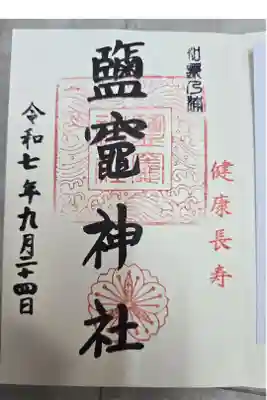 健康長寿
鹽竈神社
令和七年九月二十四日